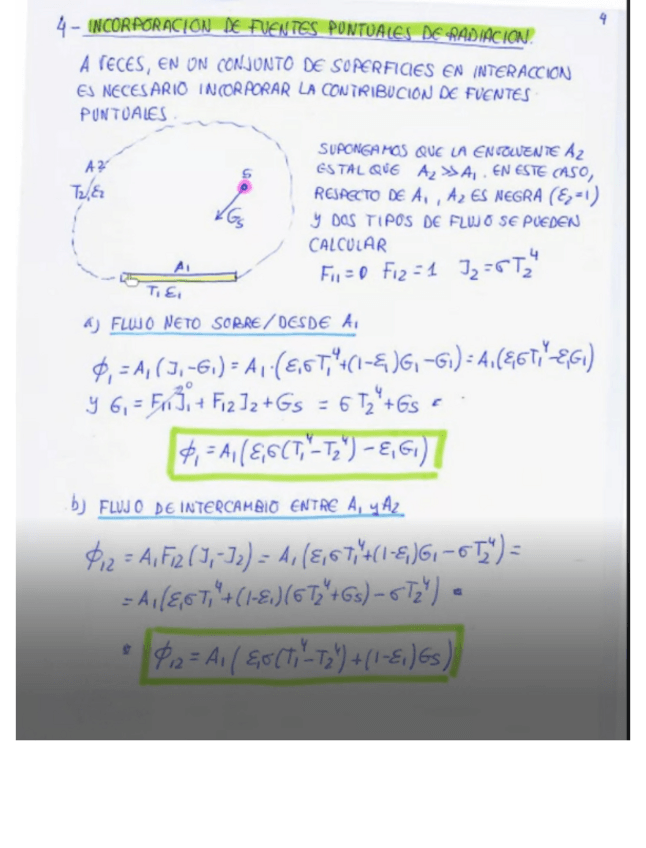 4
4- INCORPORACION DE FUENTES PUNTUALES DE RADIACION.
A VECES, EN UN CONJUNTO DE SUPERFICIES EN INTERACCION
ES NECESARIO INCORPORAR LA CONTRIBUCION DE FUENTES
PUNTUALES.
A2
T2, ε2
S
GS
A1
T1 ε1
SUPONGAMOS QUE LA ENVOLVENTE A2
ES TAL QUE A2 >> A1. EN ESTE CASO,
RESPECTO DE A1, A2 ES NEGRA (ε2=1)
Y DOS TIPOS DE FLUJO SE PUEDEN
CALCULAR
F11 = 0 F12 = 1 J2 = σT2⁴
a) FLUJO NETO SOBRE/DESDE A1
ϕ1 = A1(J1-G1) = A1·(ε1σT1⁴+(1-ε1)G1-G1) = A1(ε1σT1⁴-ε1G1)
Y G1 = F11J1 + F12J2 + GS = σT2⁴ + GS
ϕ1 = A1(ε1σ(T1⁴-T2⁴) - ε1G1)
b) FLUJO DE INTERCAMBIO ENTRE A1 y A2
ϕ12 = A1F12(J1-J2) = A1(ε1σT1⁴+(1-ε1)G1-σT2⁴) =
= A1(ε1σT1⁴+(1-ε1)(σT2⁴+GS)-σT2⁴) =
= ϕ12 = A1(ε1σ(T1⁴-T2⁴)+(1-ε1)GS)